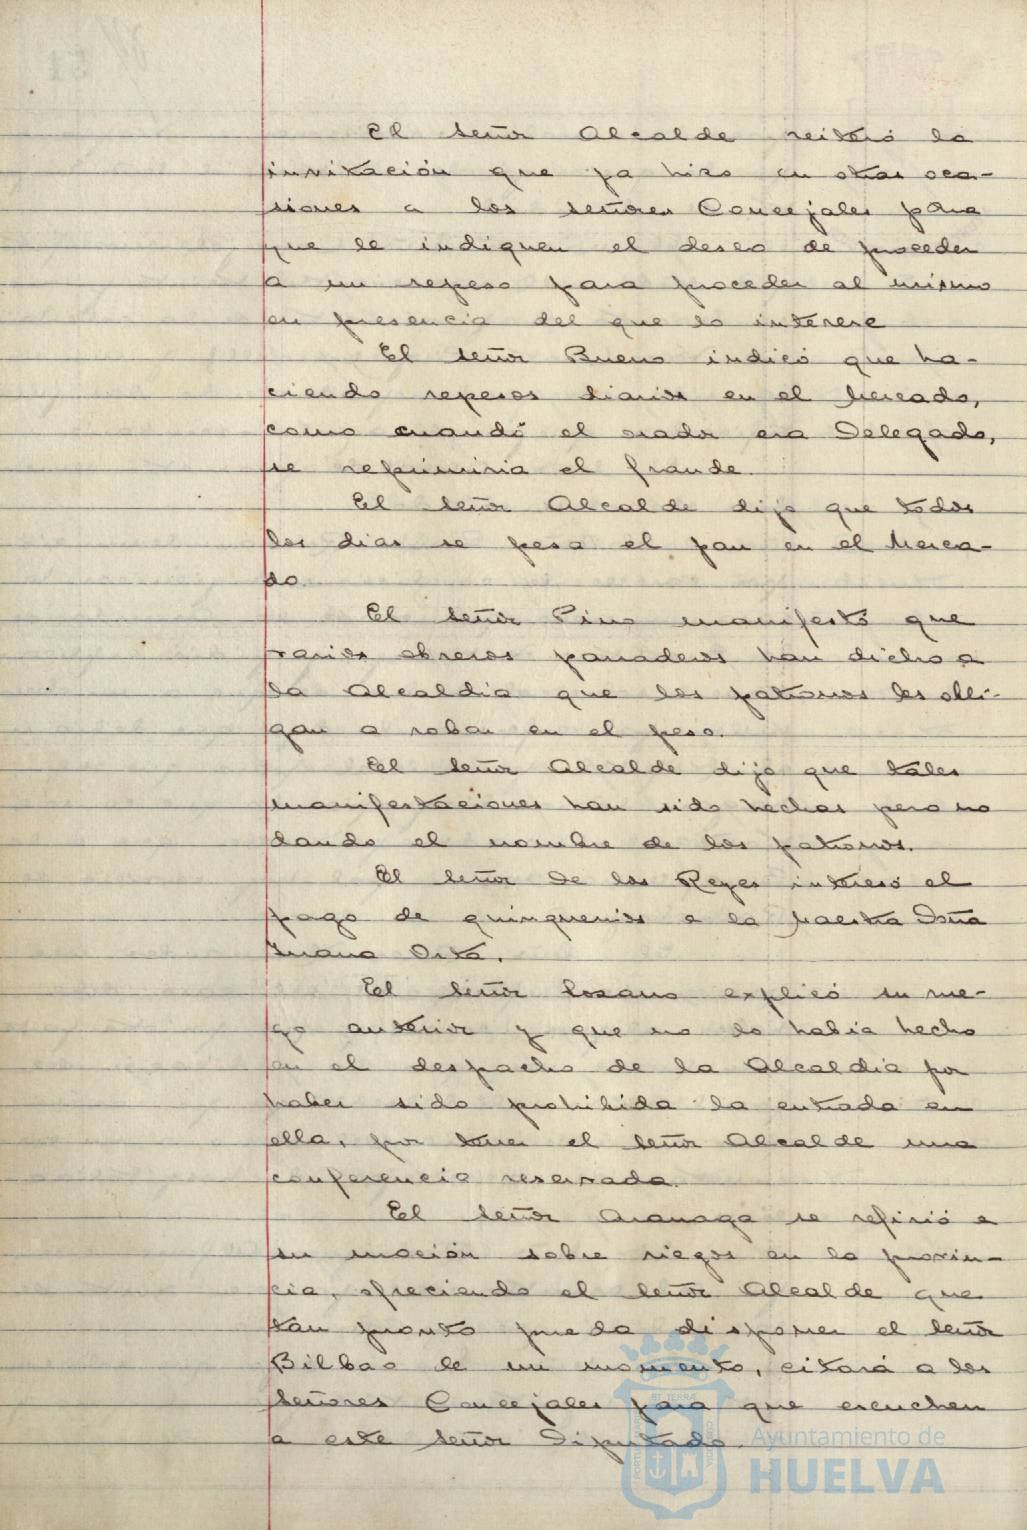 El señor Alcalde reiteró la
invitación que ya hizo en otras oca-
siones a los señores Concejales para
que le indiquen el deseo de proceder
a un repeso para proceder al mismo
en presencia del que lo interese
El señor Bueno indicó que ha-
ciendo repesos diarios en el Mercado,
como cuando el orador era Delegado,
se reprimiria el fraude.
El señor Alcalde dijo que todos
los dias se pesa el pan en el Merca-
do.
El señor Pino manifestó que
varios obreros panaderos han dicho a
la Alcaldia que los patronos les obli-
gan a robar en el peso.
El señor Alcalde dijo que tales
manifestaciones han sido hechas pero no
dando el nombre de los patronos.
El señor de los Reyes interesó el
pago de quinquenios a la Maestra Doña
Juana Orta.
El señor Lozano explicó su rue-
go anterior y que no lo habia hecho
en el despacho de la Alcaldia por
haber sido prohibida la entrada en
ella, por tener el señor Alcalde una
conferencia reservada.
El señor Aramaga se refirió a
su moción sobre riegos en la provin-
cia, ofreciendo el señor Alcalde que
tan pronto pueda disponer el señor
Bilbao de un momento, citará a los
señores Concejales para que escuchen
a este señor Diputado.
Ayuntamiento de
HUELVA